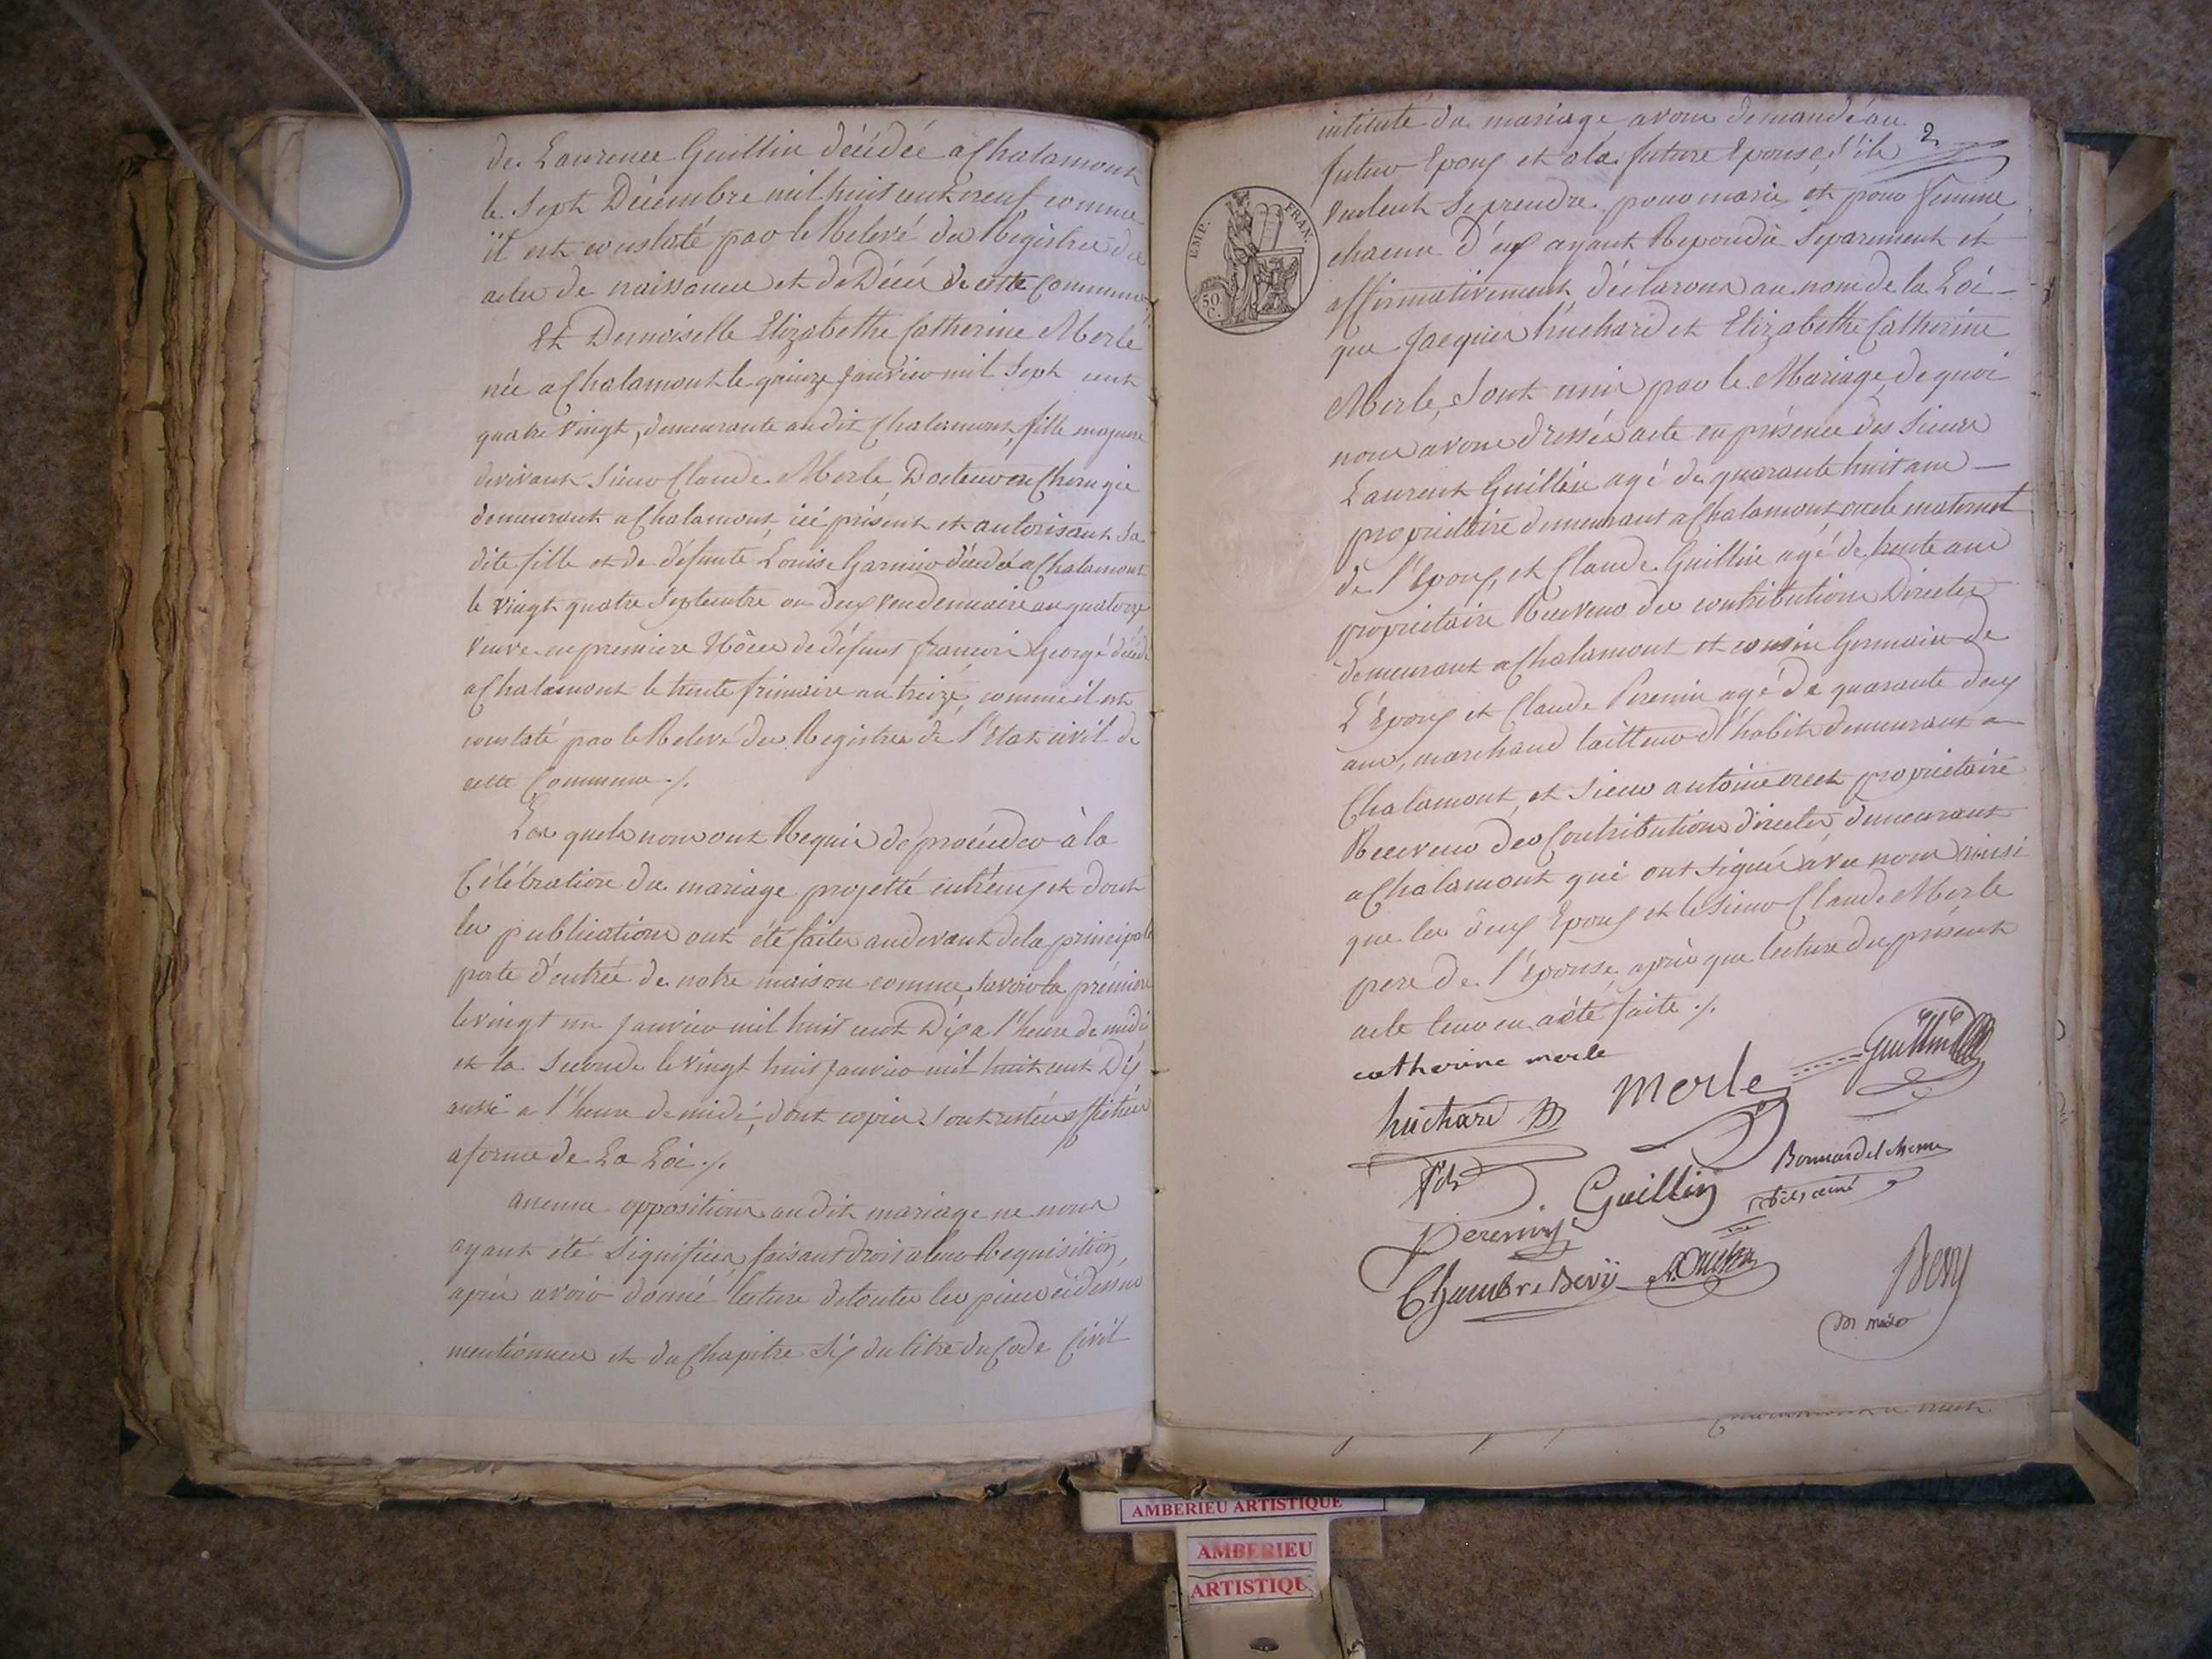 de Laurence Guillin décédée a Chalamont
le Sept Décembre mil huit cent neuf comme
il est constaté par le Relevé des Registres des
actes de naissance et de Décès de cette Commune
Et Demoiselle Elizabethe Catherine Merle
née a Chalamont le quinze Janvier mil Sept cent
quatre Vingt, demeurante audit Chalamont, fille majeure
du vivant Sieur Claude Merle Docteur en Chirurgie
demeurant a Chalamont ici présent et autorisant Sa
dite fille et de défunte Louise Garnier décédée a Chalamont
le vingt quatre Septembre ou deux vendemiaire an quatorze
Veuve en premiere Nôces de défunt françois George décédé
a Chalamont le trente frimaire an treize, comme il est
constaté par le Relevé des Registres de l'Etat civil de
cette Commune ./.
Les quels nous ont Requis de procéder à la
Célébration du mariage projetté entr'eux et dont
les publications ont été faites au devant de la principale
porte d'entrée de notre maison commune, savoir la prémiere
le vingt un Janvier mil huit cent Dix a l'heure de midi
et la Seconde le vingt huit Janvier mil huit cent Dix
aussi a l'heure de midi, dont copies sont restées affichées
a forme de La Loi ./.
aucunne opposition audit mariage ne nous
ayant été Signifiées, faisant droit a leur Requisition,
après avoir donné lecture de toutes les pieces ci dessus
mentionnées et du Chapitre Six du titre du Code Civil
intitulé du mariage avons demandé au
2
futur Epoux et a la future Epouse, s'ils
Veulent Se prendre pour marie et pour femme
chacun d'eux ayant Repondu Séparement et
affirmativement, déclarons au nom de la Loi
que Jacques huchard et Elizabethe Catherine
Merle, Sont unis par le Mariage, de quoi
nous avons dressés acte en présence des Sieurs
Laurent Guillin agé de quarante huit ans
propriétaire demeurant a Chalamont oncle maternel
de l'Epoux, et Claude Guillin agé de trente ans
propriétaire Receveur des contributions Directes
demeurant a Chalamont et cousin Germain de
L'Epoux et Claude Peremin agé de quarante deux
ans, marchand tailleur d'habits demeurant a
Chalamont, et Sieur antoine propriétaire
Receveur des Contributions directes, demeurant
a Chalamont qui ont signés avec nous ainsi
que les deux Epoux et le Sieur Claude Merle
pere de l'épouse, après que lecture du présent
acte leur en a été faite ./.
EMP. FRAN.
50 C.
catherine merle
huchard Merle Guillin
Guillin
fils ainé
Peremin
Chambre Devÿ
Devy
AMBERIEU ARTISTIQUE
AMBERIEU
ARTISTIQU